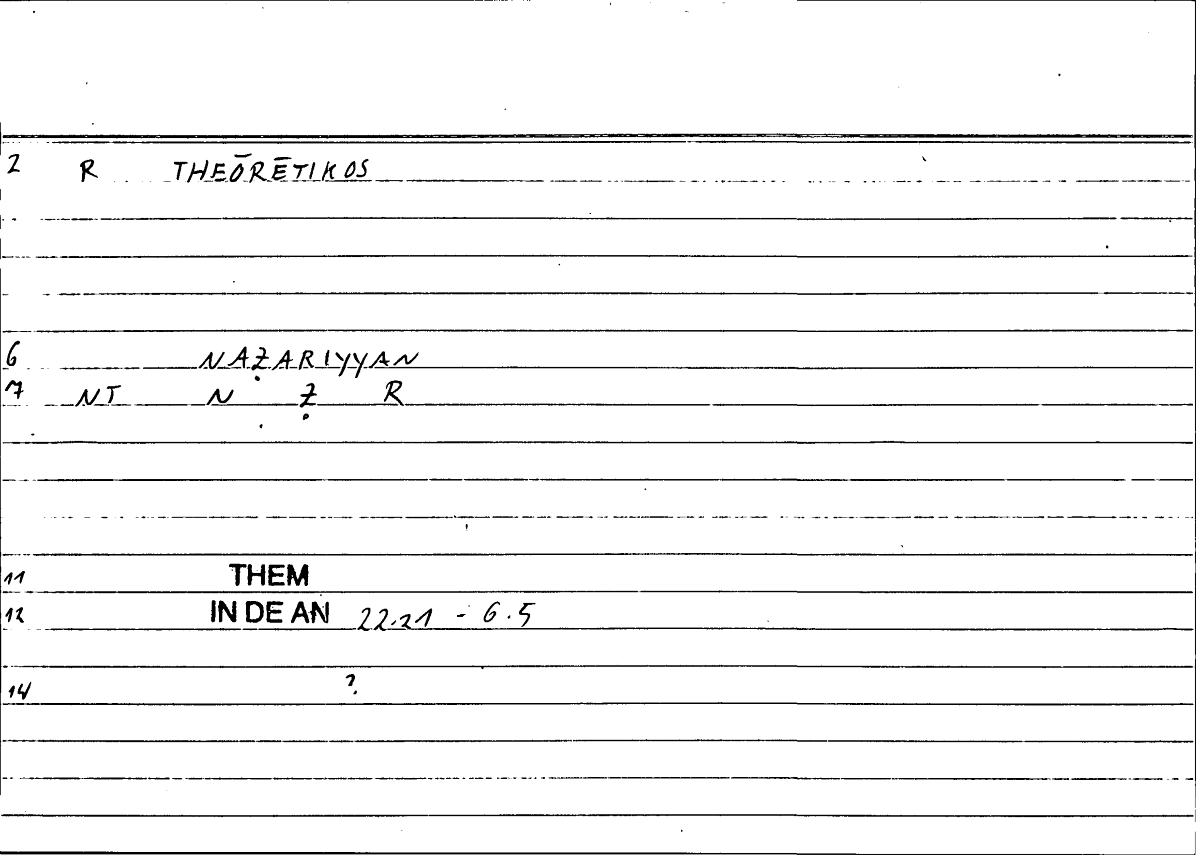 2 R THEŌRĒTIKOS
6 NAẒARIYYAN
7 NT N Ẓ R
11 THEM
12 IN DE AN 22.21 - 6.5
14 ?